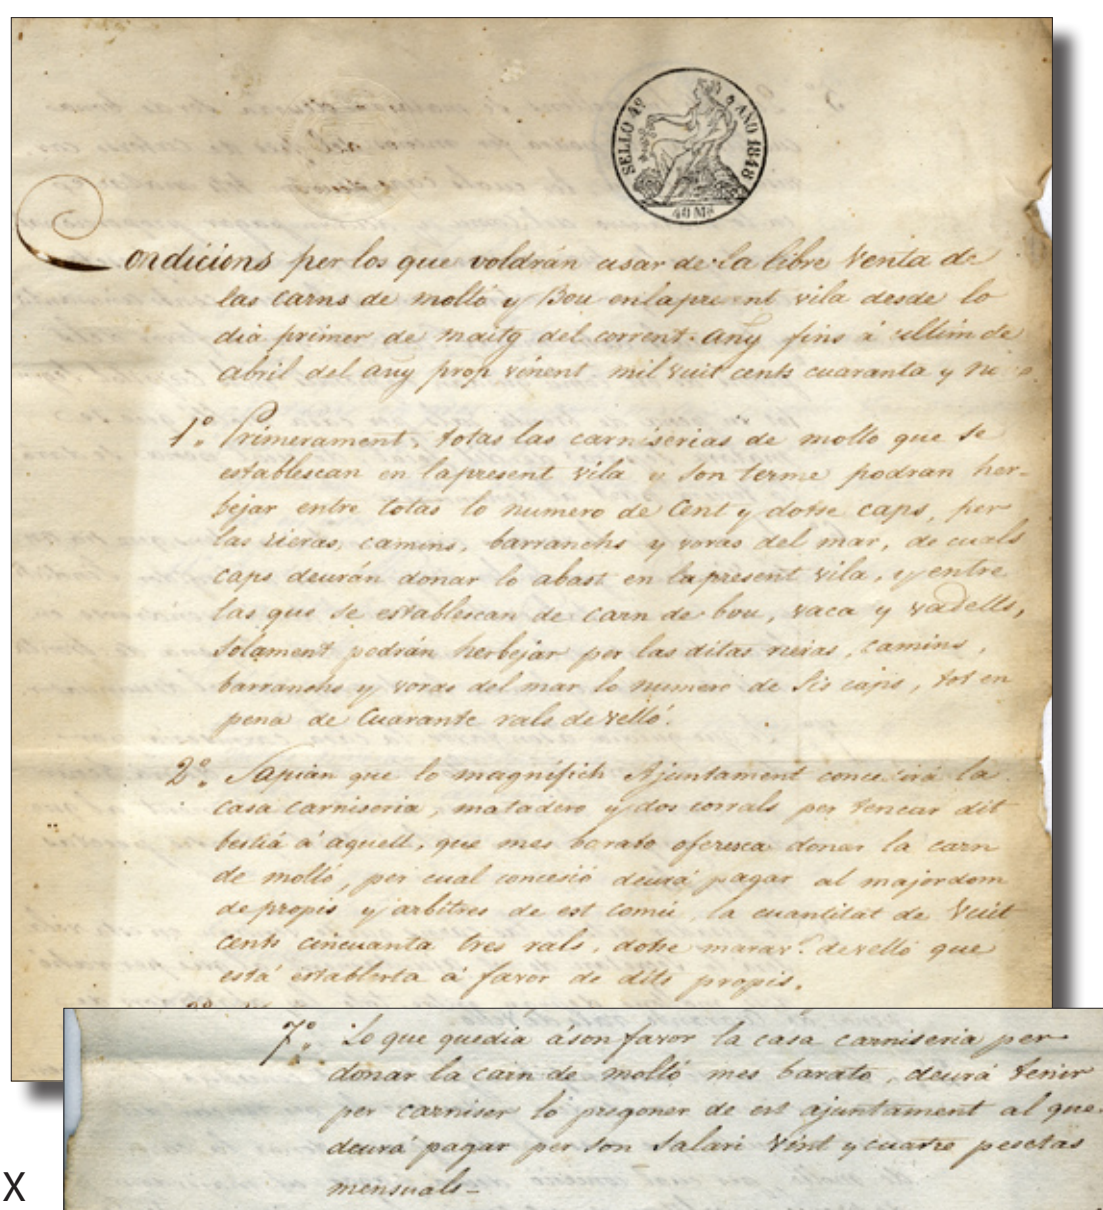 SELLO 4º AÑO 1848
40 Ms
Condicions per los que voldrán usar de la libre venta de
las carns de moltó y Bou en la present vila desde lo
dia primer de maitg del corrent any fins á ultim de
abril del any prop vinent mil vuit cents cuaranta y nou
1º Primerament, totas las carniserias de moltó que se
establescan en la present vila y son terme podran her-
bejar entre totas lo numero de Cent y dotse caps, per
las rieras, camins, barranchs y voras del mar, de cuals
caps deurán donar lo abast en la present vila, y entre
las que se establescan de carn de bou, vaca y vadells,
solament podrán herbejar per las ditas rieras, camins,
barranchs y voras del mar lo numero de sis caps, tot en
pena de Cuarante rals de velló.
2º Sapian que lo magnifich Ajuntament concedirá la
casa carniseria, matadero y dos corrals per tencar dit
bestiá á aquell, que mes barato oferesca donar la carn
de moltó, per cual concesió deurá pagar al majordom
de propis y arbitres de est comú, la cuantitat de Vuit
cents cincuanta tres rals, dotse marav.s de velló que
está establerta á favor de dits propis.
7º Lo que quedia á son favor la casa carniseria per
donar la carn de moltó mes barato, deurá tenir
per carniser lo pregoner de est ajuntament al que
deurá pagar per son salari Vint y cuatre pesetas
mensuals-
X